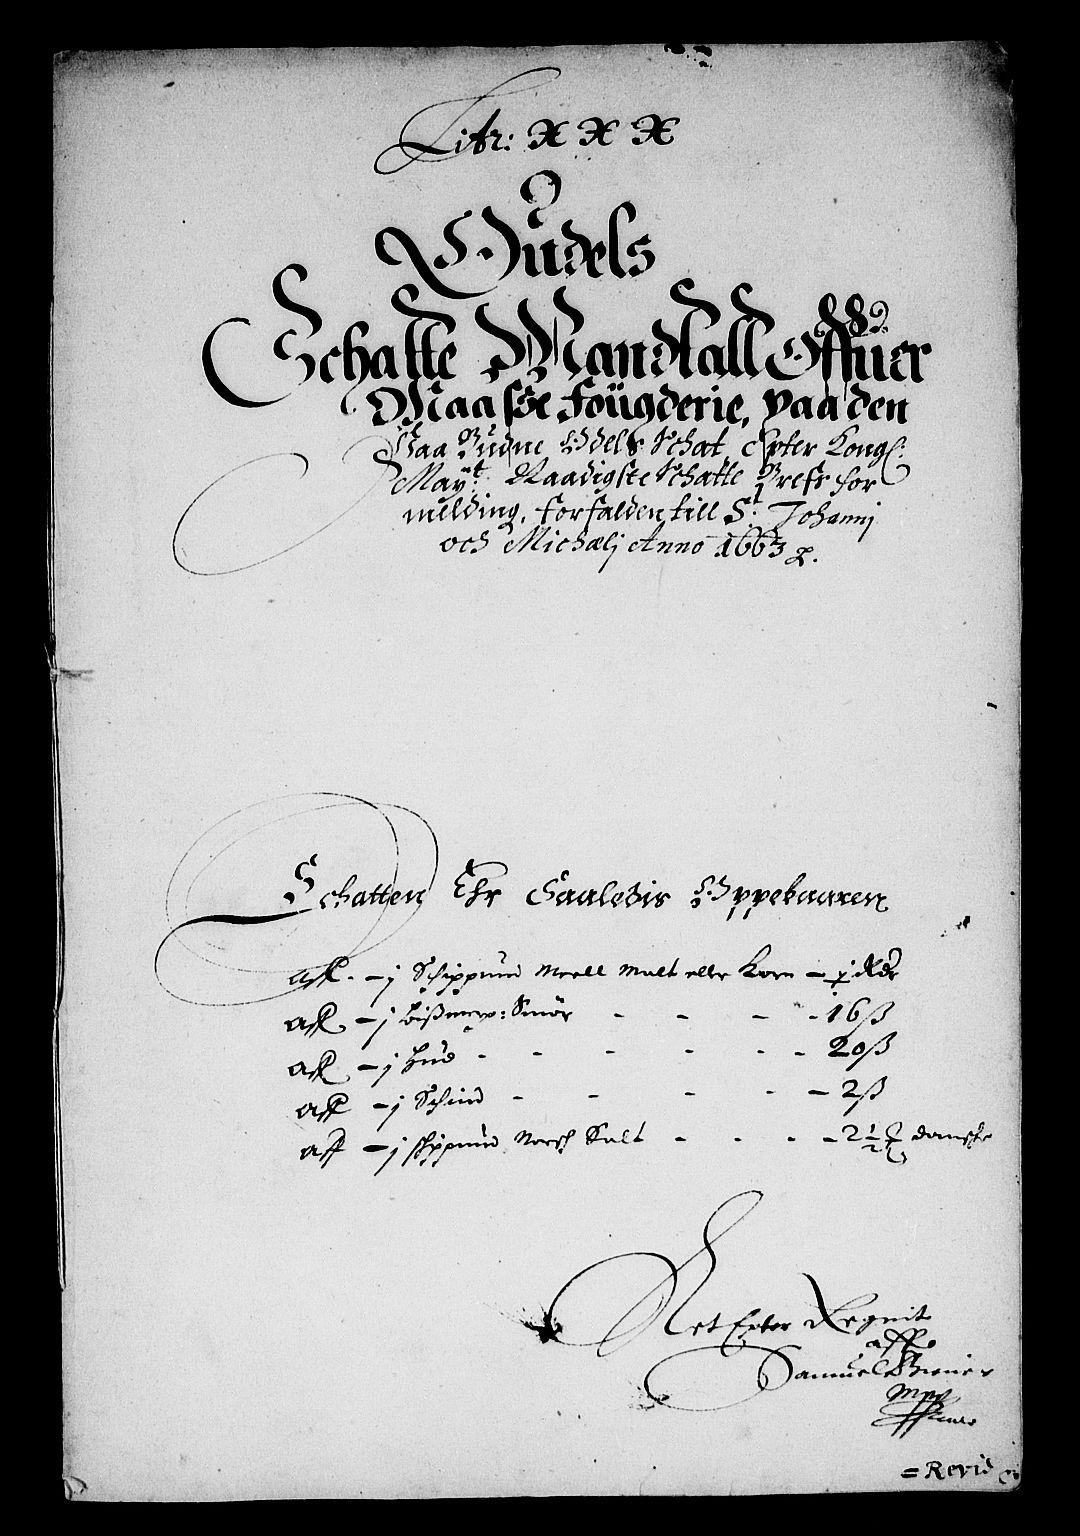 Litr: X X X
Oudels
Schatte Mandtall Offuer
Maasse fougderie, paa den
Paa Budne Odels Schat, Epter Kongl:
Mayt: Naadigste Schatte Brefs for
melding, forfalden till St: Johannj
och Michælj Anno 1663
Schatten Ehr Saaledis Oppebaaren
aff - j Schippund Meell Malt eller Korn - j Rdr
aff - j bißmerp: Smör - 16 ß
aff - j Hud - 20 ß
aff - j Schind - 2 ß
aff - j schippund Norsch Salt - 2 1/2 danske
Ret Epter Regnit
aff
Samuel
Mpp
= Revid